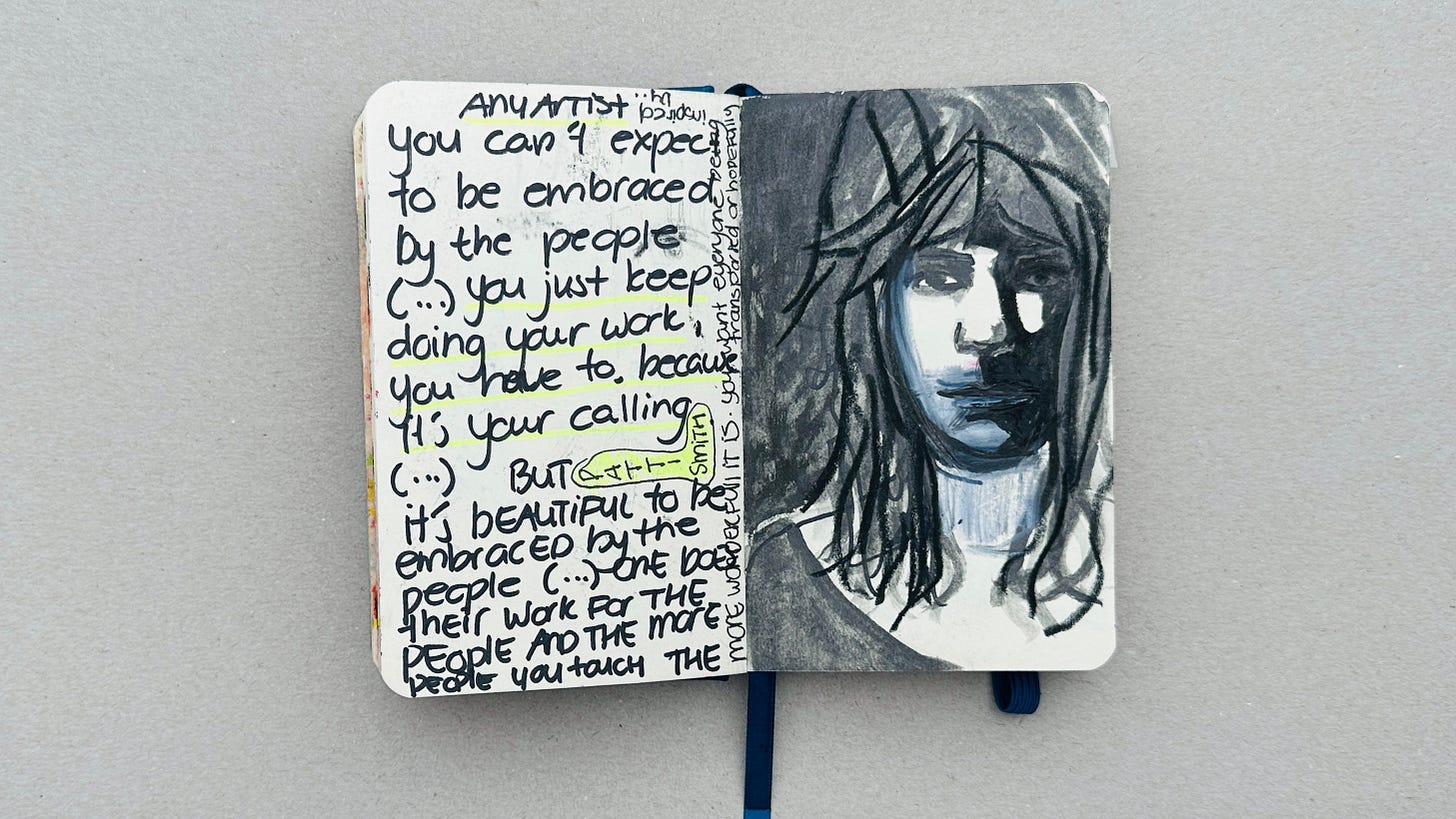 Any Artist
you can't expect
to be embraced
by the people
(...) you just keep
doing your work.
you have to, because
it's your calling
(...) BUT PATTI SMITH
it's bEAUTiFUL to be
embracED by the
people (...) ONE DOES
their work For THE
people AND THE more
people you touch THE
more wonderfull it is. you want everyone being
transported or hopefully
inspired
by...